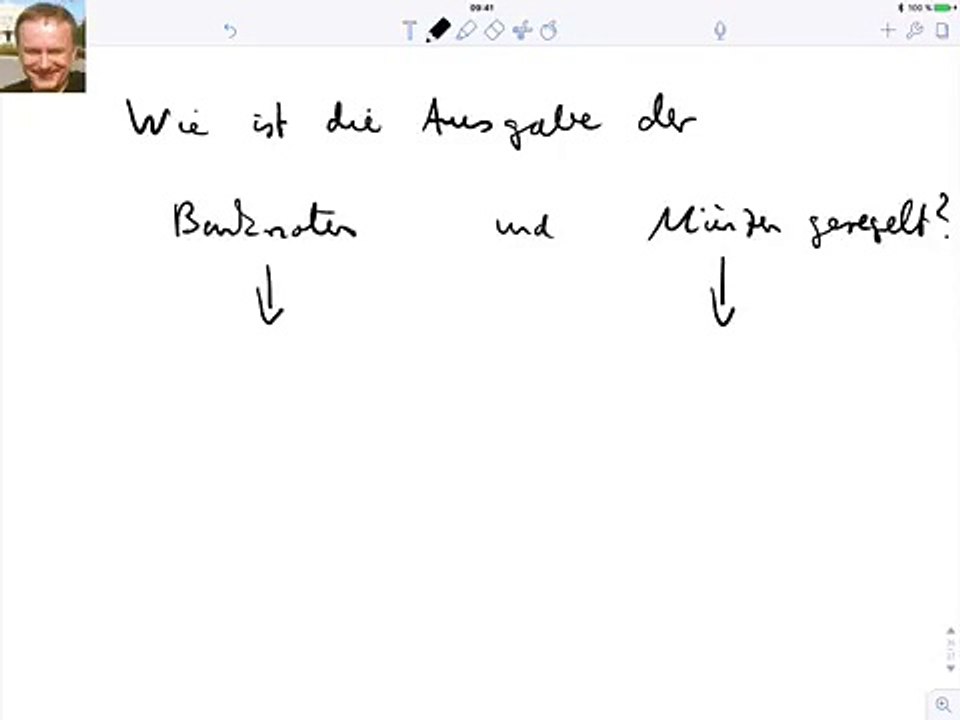 09:41
100 %
T
Wie ist die Ausgabe der
Banknoten und Münzen geregelt?